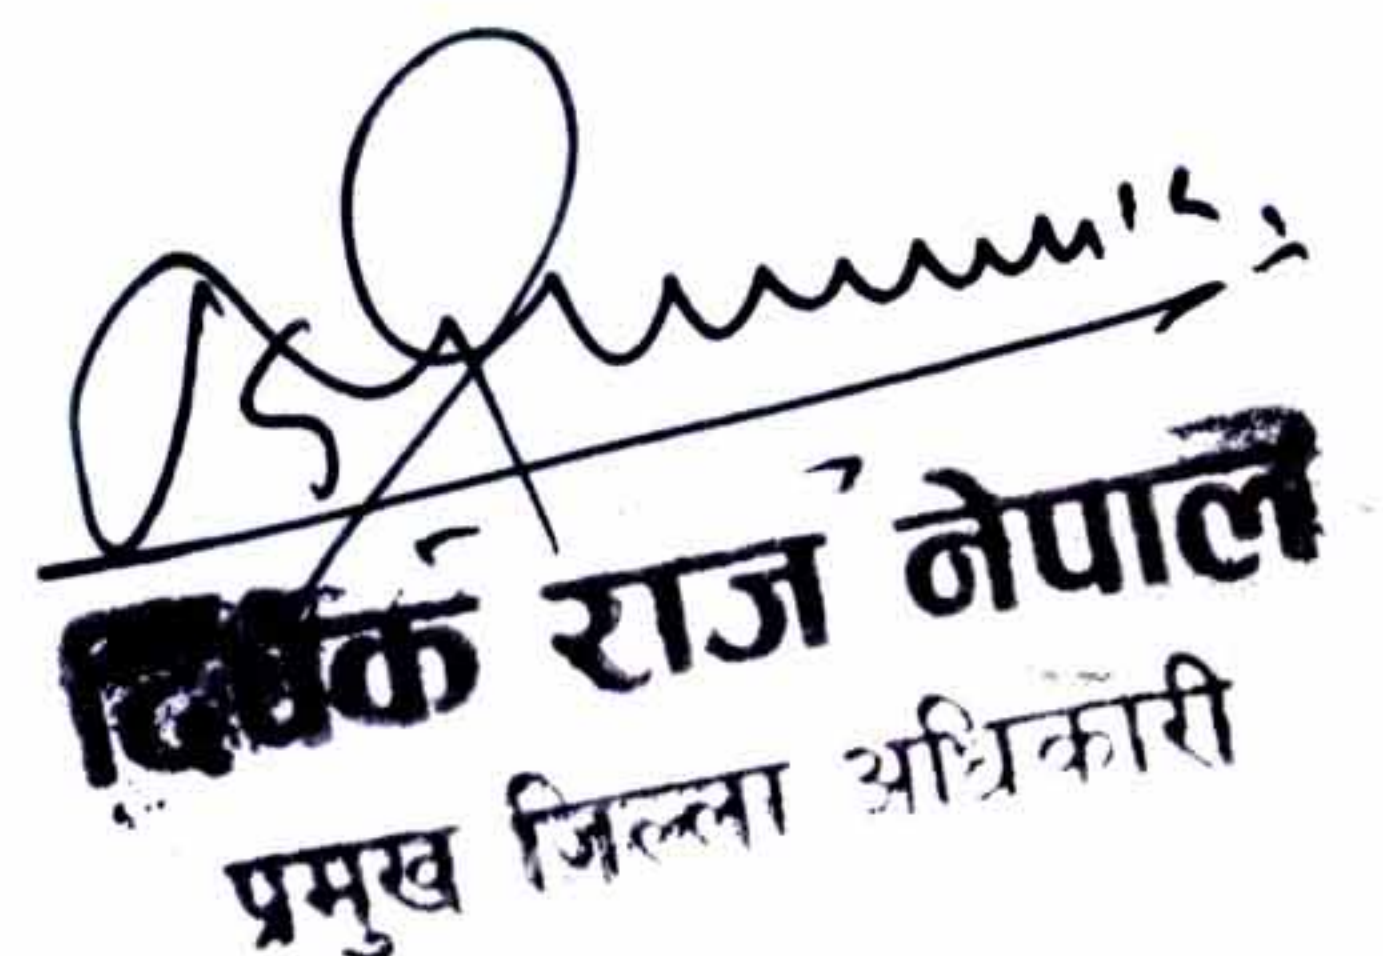 राज नेपाल
प्रमुख जिल्ला अधिकारी